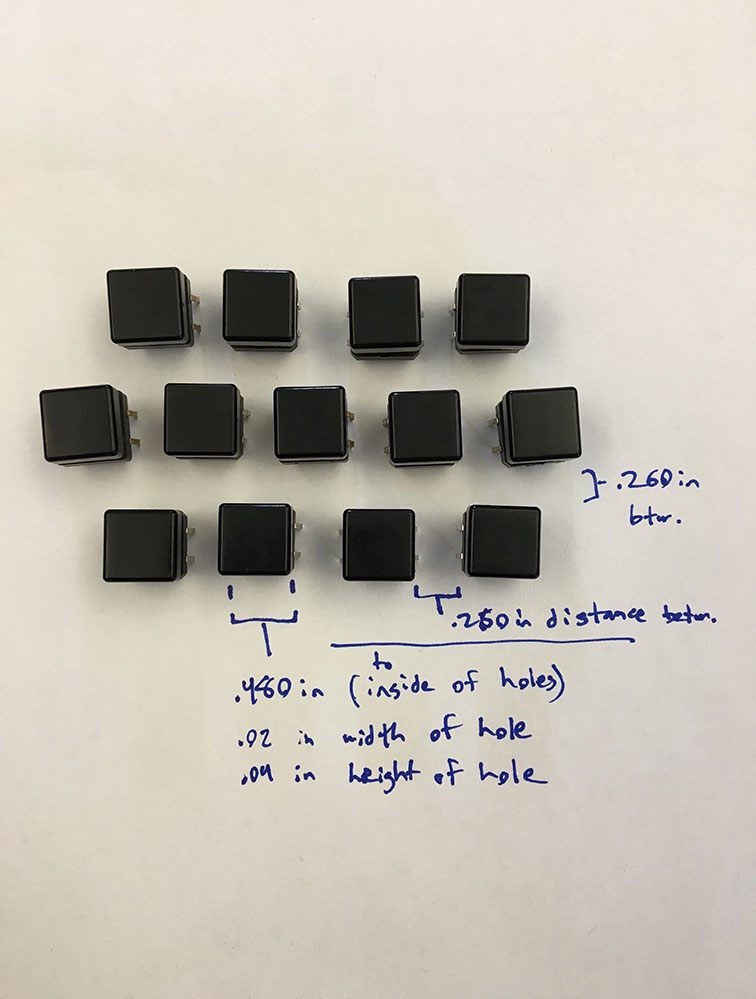 .260 in
btw.
.260 in distance betw.
.480 in (inside of holes)
to
.02 in width of hole
.04 in height of hole